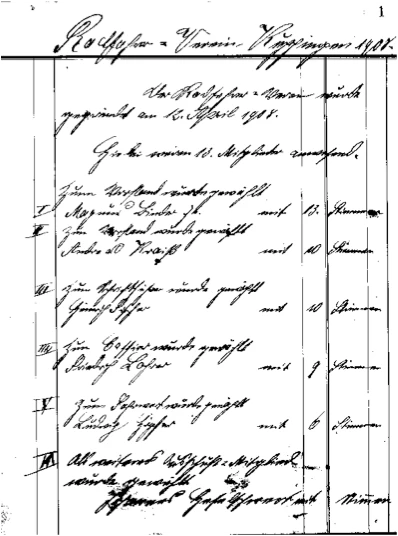 1
Radfahrer = Verein 1908.
Der Radfahrer = Verein wurde
gegründet am 12. April 1908.
Hiebei waren 13. Mitglieder anwesend.
Zum Vorstand wurde gewählt
I Magnus Binder mit 13. Stimmen
II Zum Vorstand wurde gewählt
Andreas mit 10 Stimmen
III Zum Schriftführer wurde gewählt
mit 10 Stimmen
IIII Zum Cassier wurde gewählt
Friedrich mit 9 Stimmen
V Zum Fahrwart wurde gewählt
Ludwig mit 6 Stimmen
VI Als weiteres Ausschuß = Mitglied
wurde gewählt
mit Stimmen